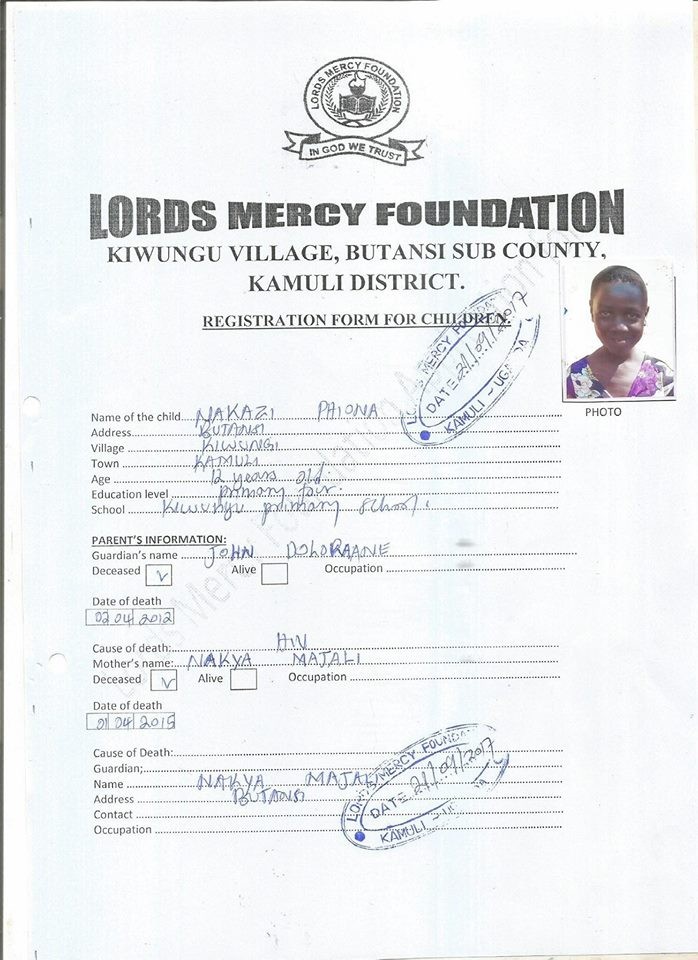 LORDS MERCY FOUNDATION
IN GOD WE TRUST
LORDS MERCY FOUNDATION
KIWUNGU VILLAGE, BUTANSI SUB COUNTY,
KAMULI DISTRICT.
REGISTRATION FORM FOR CHILDREN.
LORDS MERCY FOUNDATION
DATE 21/09/2017
KAMULI - UGANDA
PHOTO
Name of the child NAKAZI PHIONA
Address BUTANSI
Village KIWUNGI
Town KAMULI
Age 12 years old.
Education level primary four
School Kiwungu primary school.
PARENT'S INFORMATION:
Guardian's name JOHN DOLORAANE
Deceased V Alive Occupation
Date of death
02 04 2012
Cause of death: HIV
Mother's name: NAKYA MAJALI
Deceased V Alive Occupation
Date of death
01 04 2015
Cause of Death:
Guardian;
Name NAKYA MAJALI
Address BUTANSI
Contact
Occupation
LORDS MERCY FOUNDA
DATE 21/09/2017
KAMULI